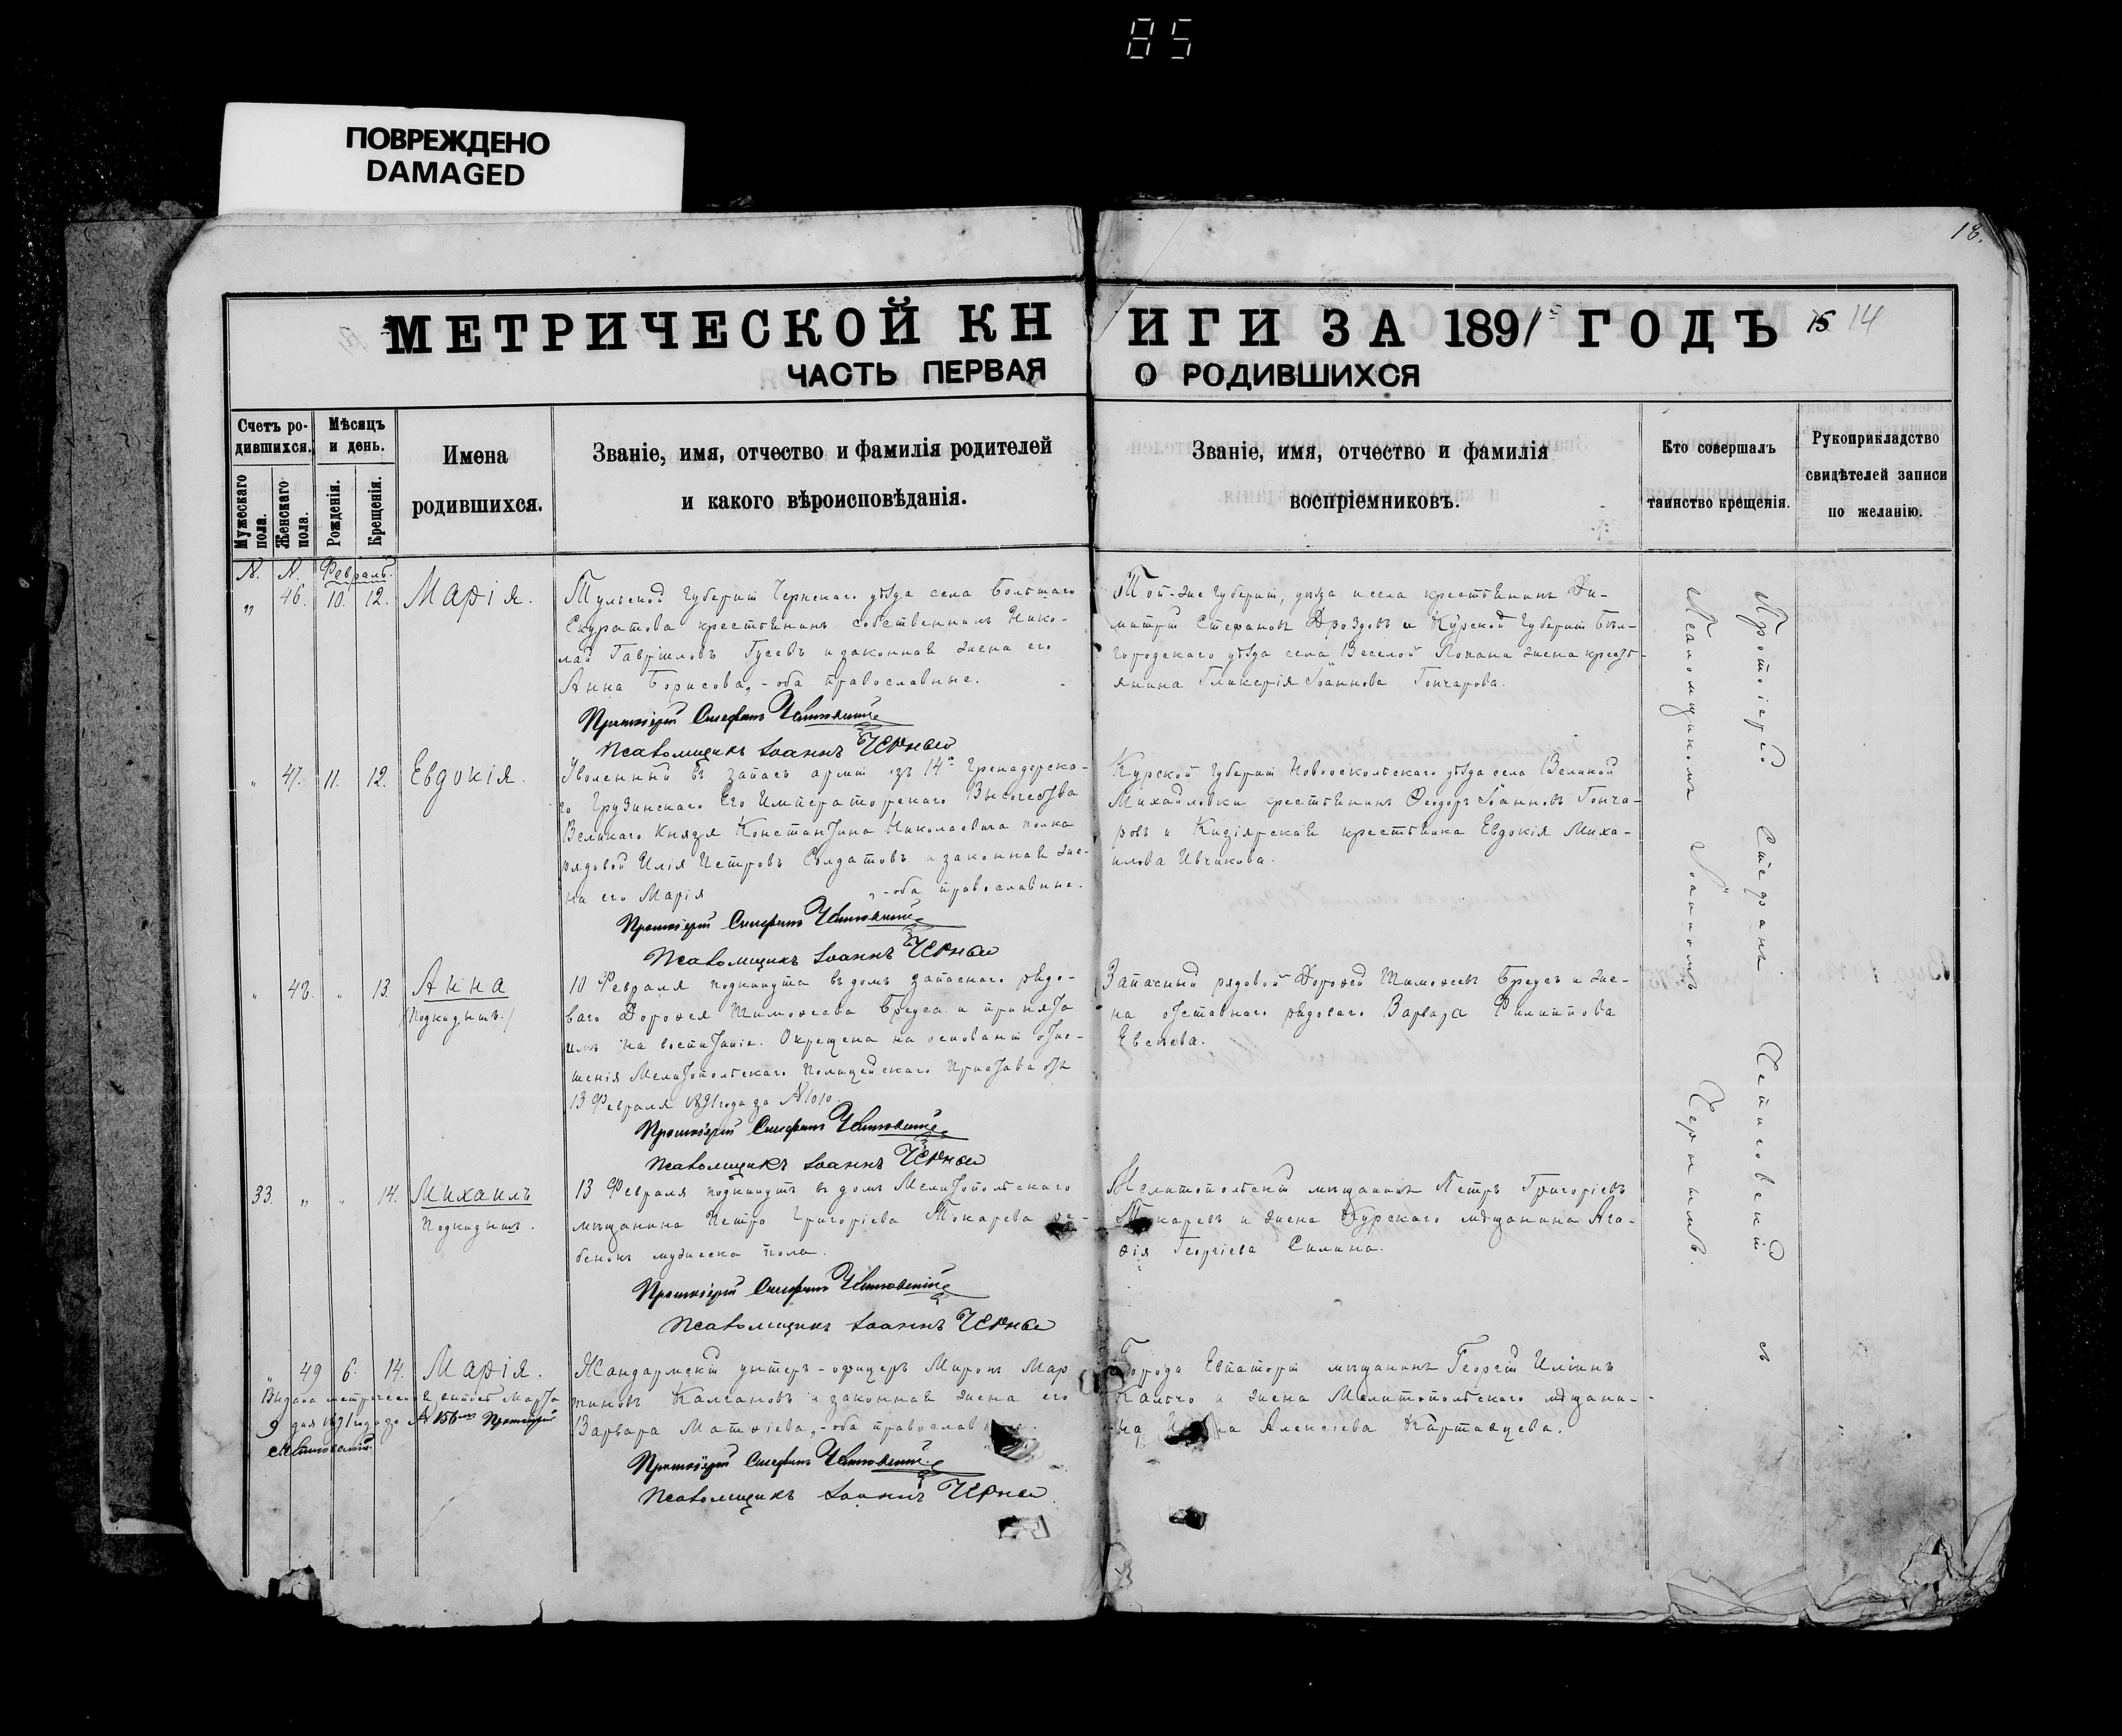 85
ПОВРЕЖДЕНО
DAMAGED
18.
МЕТРИЧЕСКОЙ КНИГИ ЗА 1891 ГОДЪ 15 14
ЧАСТЬ ПЕРВАЯ О РОДИВШИХСЯ
Счетъ ро-
дившихся.
Мужескаго пола.
Женскаго пола.
Мѣсяцъ
и день.
Рожденія.
Крещенія.
Имена
родившихся.
Званіе, имя, отчество и фамилія родителей
и какого вѣроисповѣданія.
Званіе, имя, отчество и фамилія
воспріемниковъ.
Кто совершалъ
таинство крещенія.
Рукоприкладство
свидѣтелей записи
по желанію.
N. N. Февраль.
„ 46. 10. 12. Марія.
Тульской губерніи Чернскаго уѣзда села Большаго
Скуратова крестьянинъ собственникъ Нико-
лай Гавріиловъ Гусевъ и законная жена его
Анна Борисова, - оба православные.
Протоіерей Стефанъ
Псаломщикъ Іоаннъ Черный
Той-же губерніи, уѣзда и села крестьянинъ Ди-
митрій Стефановъ Дроздовъ и Курской губерніи Бѣл-
городскаго уѣзда села Веселой Лопани жена крест-
янина Гликерія Іоаннова Гончарова.
„ 47. 11. 12. Евдокія.
Уволенный въ запасъ арміи изъ 14го Гренадерска-
го Грузинскаго Его Императорскаго Высочества
Великаго Князя Константина Николаевича полка
рядовой Илія Петровъ Солдатовъ и законная же-
на его Марія , - оба православные.
Протоіерей Стефанъ
Псаломщикъ Іоаннъ Черный
Курской губерніи Новооскольскаго уѣзда села Великой
Михайловки крестьянинъ Ѳеодоръ Іоанновъ Гонча-
ровъ и Кизіярская крестьянка Евдокія Миха-
илова Ивчикова.
„ 48. „ 13. Анна
/Подкидышъ./
10 Февраля подкинута въ домъ запаснаго рядо-
ваго Дороѳея Тимоѳеева Бреуса и принята
имъ на воспитаніе. Окрещена на основаніи отно-
шенія Мелитопольскаго Полицейскаго Пристава отъ
13 Февраля 1891 года за N 1010.
Протоіерей Стефанъ
Псаломщикъ Іоаннъ Черный
Запасный рядовой Дороѳей Тимоѳеевъ Бреусъ и же-
на отставнаго рядоваго Варвара Филиппова
Евсѣева.
33. „ „ 14. Михаилъ
Подкидышъ.
13 Февраля подкинутъ въ домъ Мелитопольскаго
мѣщанина Петра Григоріева Токарева ре-
бенокъ мужеска пола.
Протоіерей Стефанъ
Псаломщикъ Іоаннъ Черный
Мелитопольскій мѣщанинъ Петръ Григоріевъ
Токаревъ и жена Курскаго мѣщанина Ага-
ѳія Георгіева Силина.
„ 49 6. 14. Марія.
Выдана метрическая выпись Марта
9 дня 1891 года за N 156мъ Протоіерей
Жандармскій унтеръ-офицеръ Миронъ Мар
тиновъ Калгановъ и законная жена его
Варвара Матѳіева, - оба православные.
Протоіерей Стефанъ
Псаломщикъ Іоаннъ Черный
Города Евпаторіи мѣщанинъ Георгій Иліинъ
Калычо и жена Мелитопольскаго мѣщани-
на Алексіева Картавцева.
Протоіерей Стефанъ съ
Псаломщикомъ Іоанномъ Чернымъ.